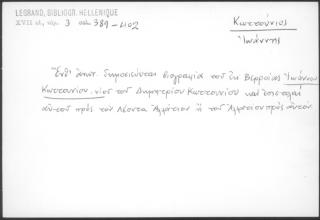 LEGRAND, BIBLIOGR. HELLENIQUE
XVII αἰ., τόμ. 3 σελ. 389-402
Κωττούνιος
Ἰωάννης
Ἔνθ' ἀνωτ. δημοσιεύεται βιογραφία τοῦ ἐκ Βερροίας Ἰωάννου
Κωττουνίου, υἱοῦ τοῦ Δημητρίου Κωττουνίου καὶ ἐπιστολαὶ
αὐτοῦ πρὸς τὸν Λέοντα Ἀλλάτιον ἢ τοῦ Ἀλλατίου πρὸς αὐτόν